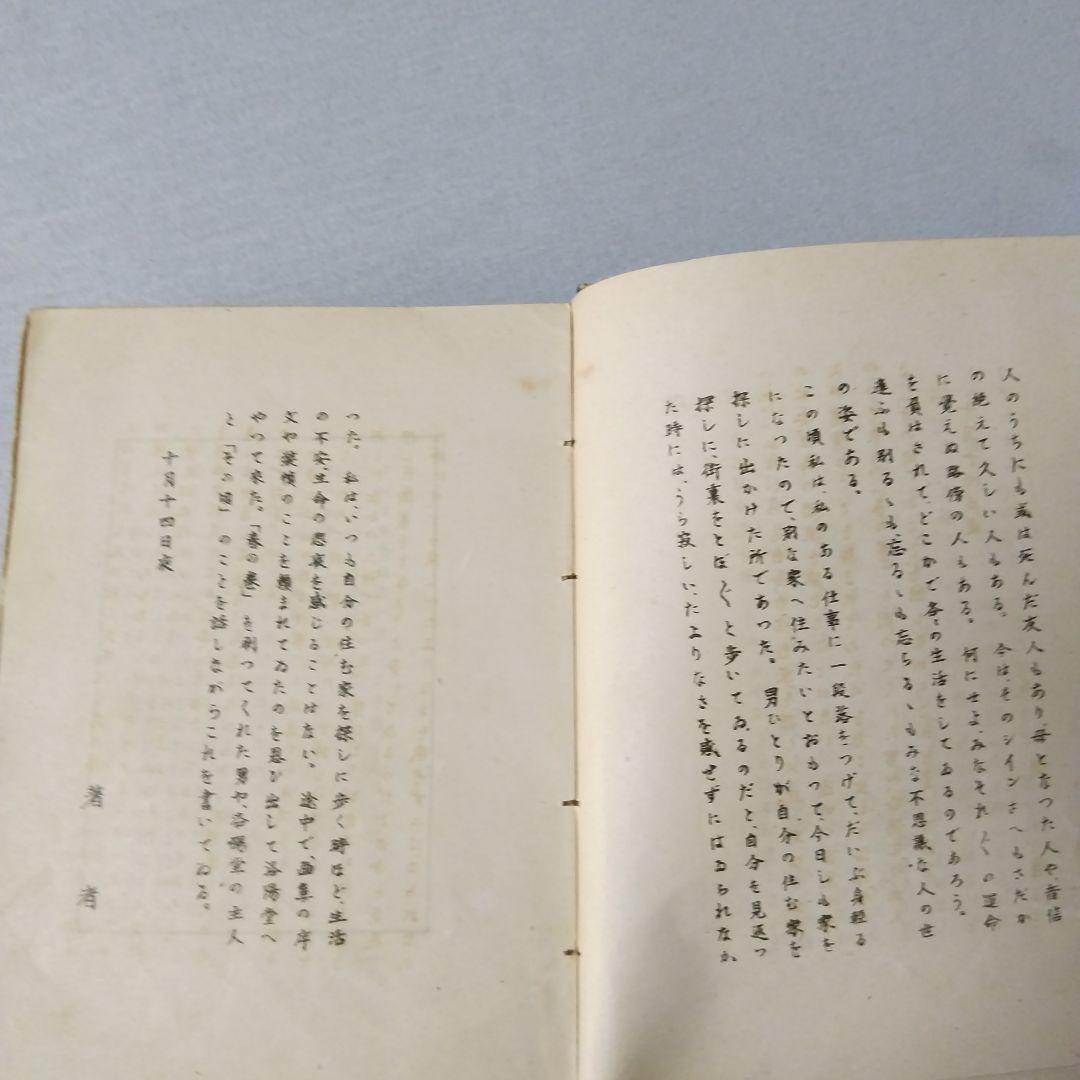 人のうちにも或は死んだ友人もあり、母となつた人や、音信
の絶えて久しい人もある。今は、そのシインさへもさだか
に覚えぬ路傍の人もある。何にせよ、みなそれ〲の運命
を負はされて、どこかで各々の生活をしてゐるのであろう。
逢ふも別るゝも、忘るゝも忘らるゝもみな不思議な人の世
の姿である。
この頃私は、私のある仕事に一段落をつげて、だいぶ身軽る
になつたので、別な家へ住みたいとおもつて、今日しも家を
探しに出かけた所であつた。男ひとりが自分の住む家を
探しに、街裏をとぼ〱と歩いてゐるのだと、自分を見返つ
た時には、うら寂しいたよりなさを感せずにはゐられなか
つた。私は、いつも自分の住む家を探しに歩く時ほど、生活
の不安、生命の悲哀を感じることはない。途中で、画集の序
文や装幀のことを頼まれてゐたのを思ひ出して洛陽堂へ
やつて来た。「春の巻」を刷つてくれた男や、洛陽堂の主人
と「その頃」のことを話しながらこれを書いてゐる。
十月十四日夜
著者